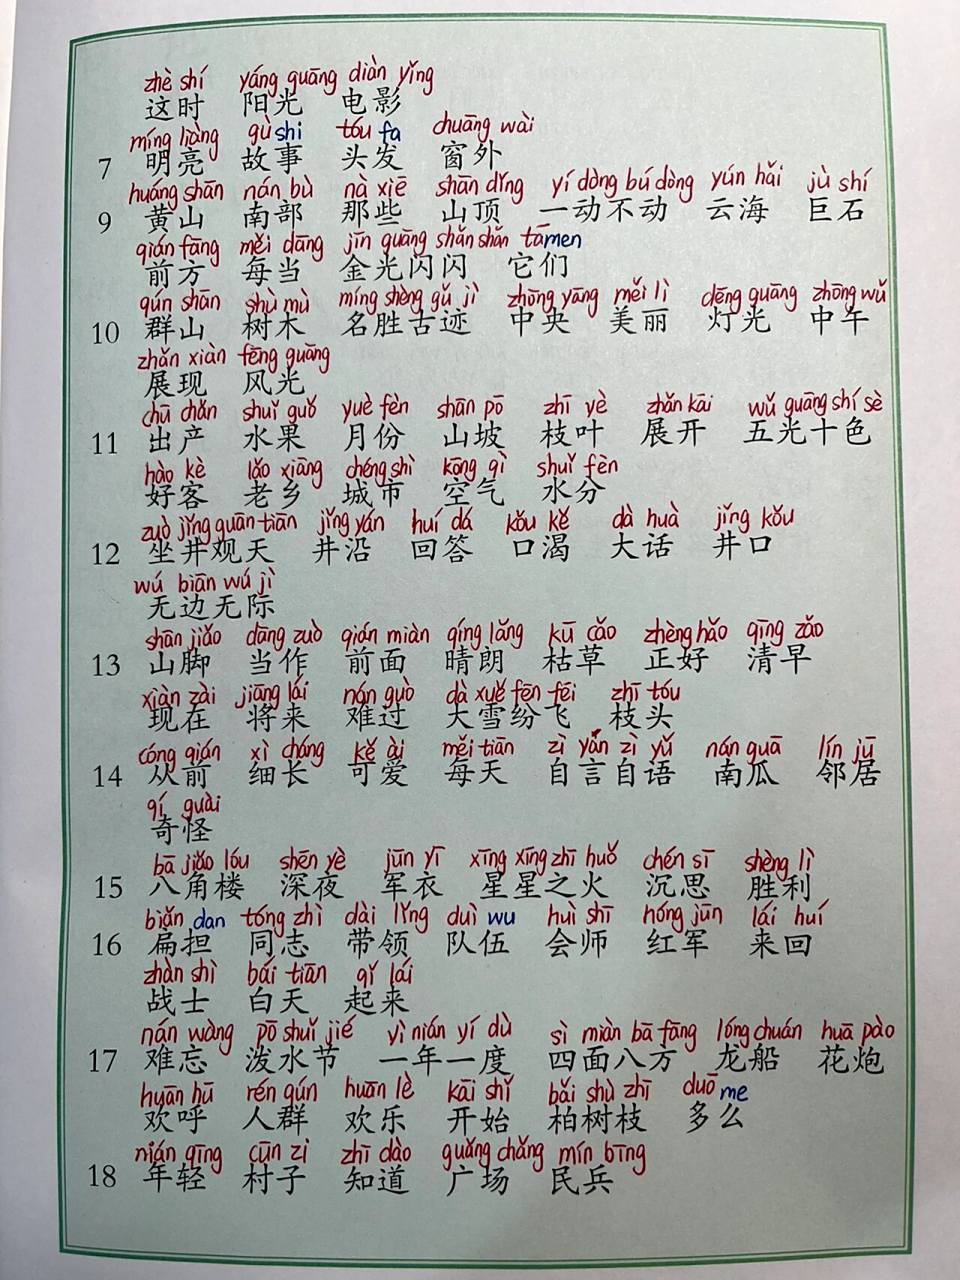 zhè shí yáng guāng diàn yǐng
这时 阳光 电影
míng liàng gù shi tóu fa chuāng wài
7 明亮 故事 头发 窗外
huáng shān nán bù nà xiē shān dǐng yí dòng bú dòng yún hǎi jù shí
9 黄山 南部 那些 山顶 一动不动 云海 巨石
qián fāng měi dāng jīn guāng shǎn shǎn tā men
前方 每当 金光闪闪 它们
qún shān shù mù míng shèng gǔ jì zhōng yāng měi lì dēng guāng zhōng wǔ
10 群山 树木 名胜古迹 中央 美丽 灯光 中午
zhǎn xiàn fēng guāng
展现 风光
chū chǎn shuǐ guǒ yuè fèn shān pō zhī yè zhǎn kāi wǔ guāng shí sè
11 出产 水果 月份 山坡 枝叶 展开 五光十色
hào kè lǎo xiāng chéng shì kōng qì shuǐ fèn
好客 老乡 城市 空气 水分
zuò jǐng guān tiān jǐng yán huí dá kǒu kě dà huà jǐng kǒu
12 坐井观天 井沿 回答 口渴 大话 井口
wú biān wú jì
无边无际
shān jiǎo dāng zuò qián miàn qíng lǎng kū cǎo zhèng hǎo qīng zǎo
13 山脚 当作 前面 晴朗 枯草 正好 清早
xiàn zài jiāng lái nán guò dà xuě fēn fēi zhī tóu
现在 将来 难过 大雪纷飞 枝头
cóng qián xì cháng kě ài měi tiān zì yán zì yǔ nán guā lín jū
14 从前 细长 可爱 每天 自言自语 南瓜 邻居
qí guài
奇怪
bā jiǎo lóu shēn yè jūn yī xīng xīng zhī huǒ chén sī shèng lì
15 八角楼 深夜 军衣 星星之火 沉思 胜利
biǎn dan tóng zhì dài lǐng duì wu huì shī hóng jūn lái huí
16 扁担 同志 带领 队伍 会师 红军 来回
zhàn shì bái tiān qǐ lái
战士 白天 起来
nán wàng pō shuǐ jié yì nián yí dù sì miàn bā fāng lóng chuán huā pào
17 难忘 泼水节 一年一度 四面八方 龙船 花炮
huān hū rén qún huān lè kāi shǐ bǎi shù zhī duō me
欢呼 人群 欢乐 开始 柏树枝 多么
nián qīng cūn zi zhī dào guǎng chǎng mín bīng
18 年轻 村子 知道 广场 民兵